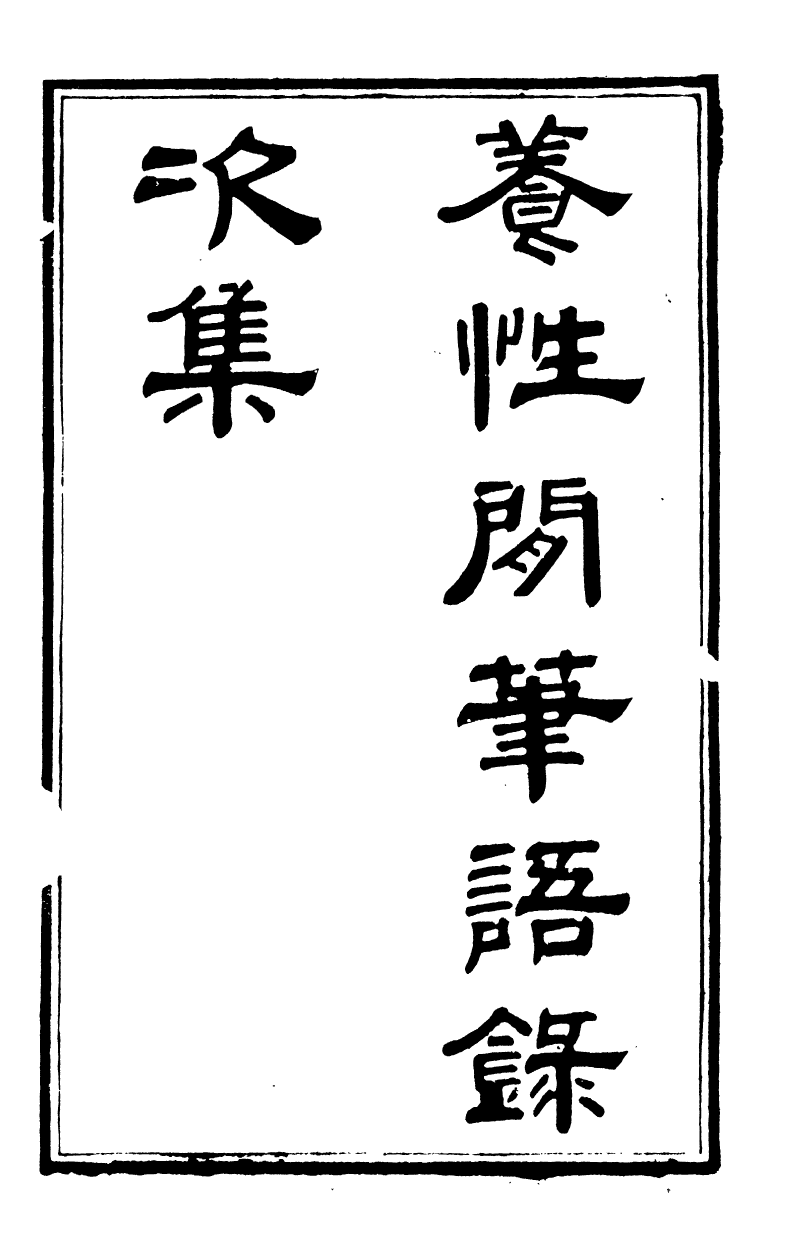 養性閒筆語錄
次集